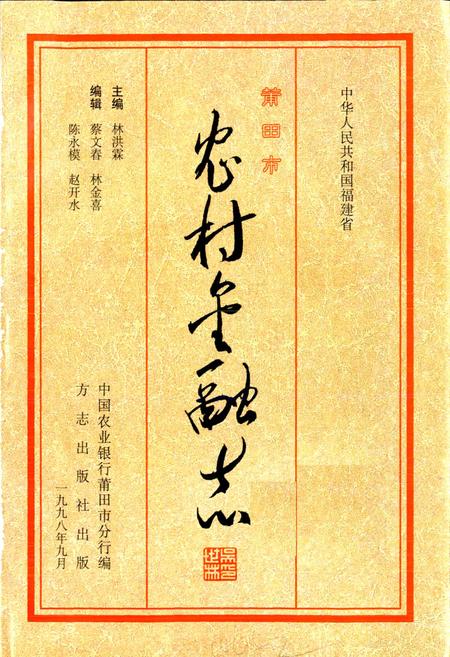 中华人民共和国福建省
莆田市
农村金融志
主编 林洪霖
编辑 蔡文春 林金喜
陈永模 赵开水
中国农业银行莆田市分行编
方志出版社出版
一九九八年九月